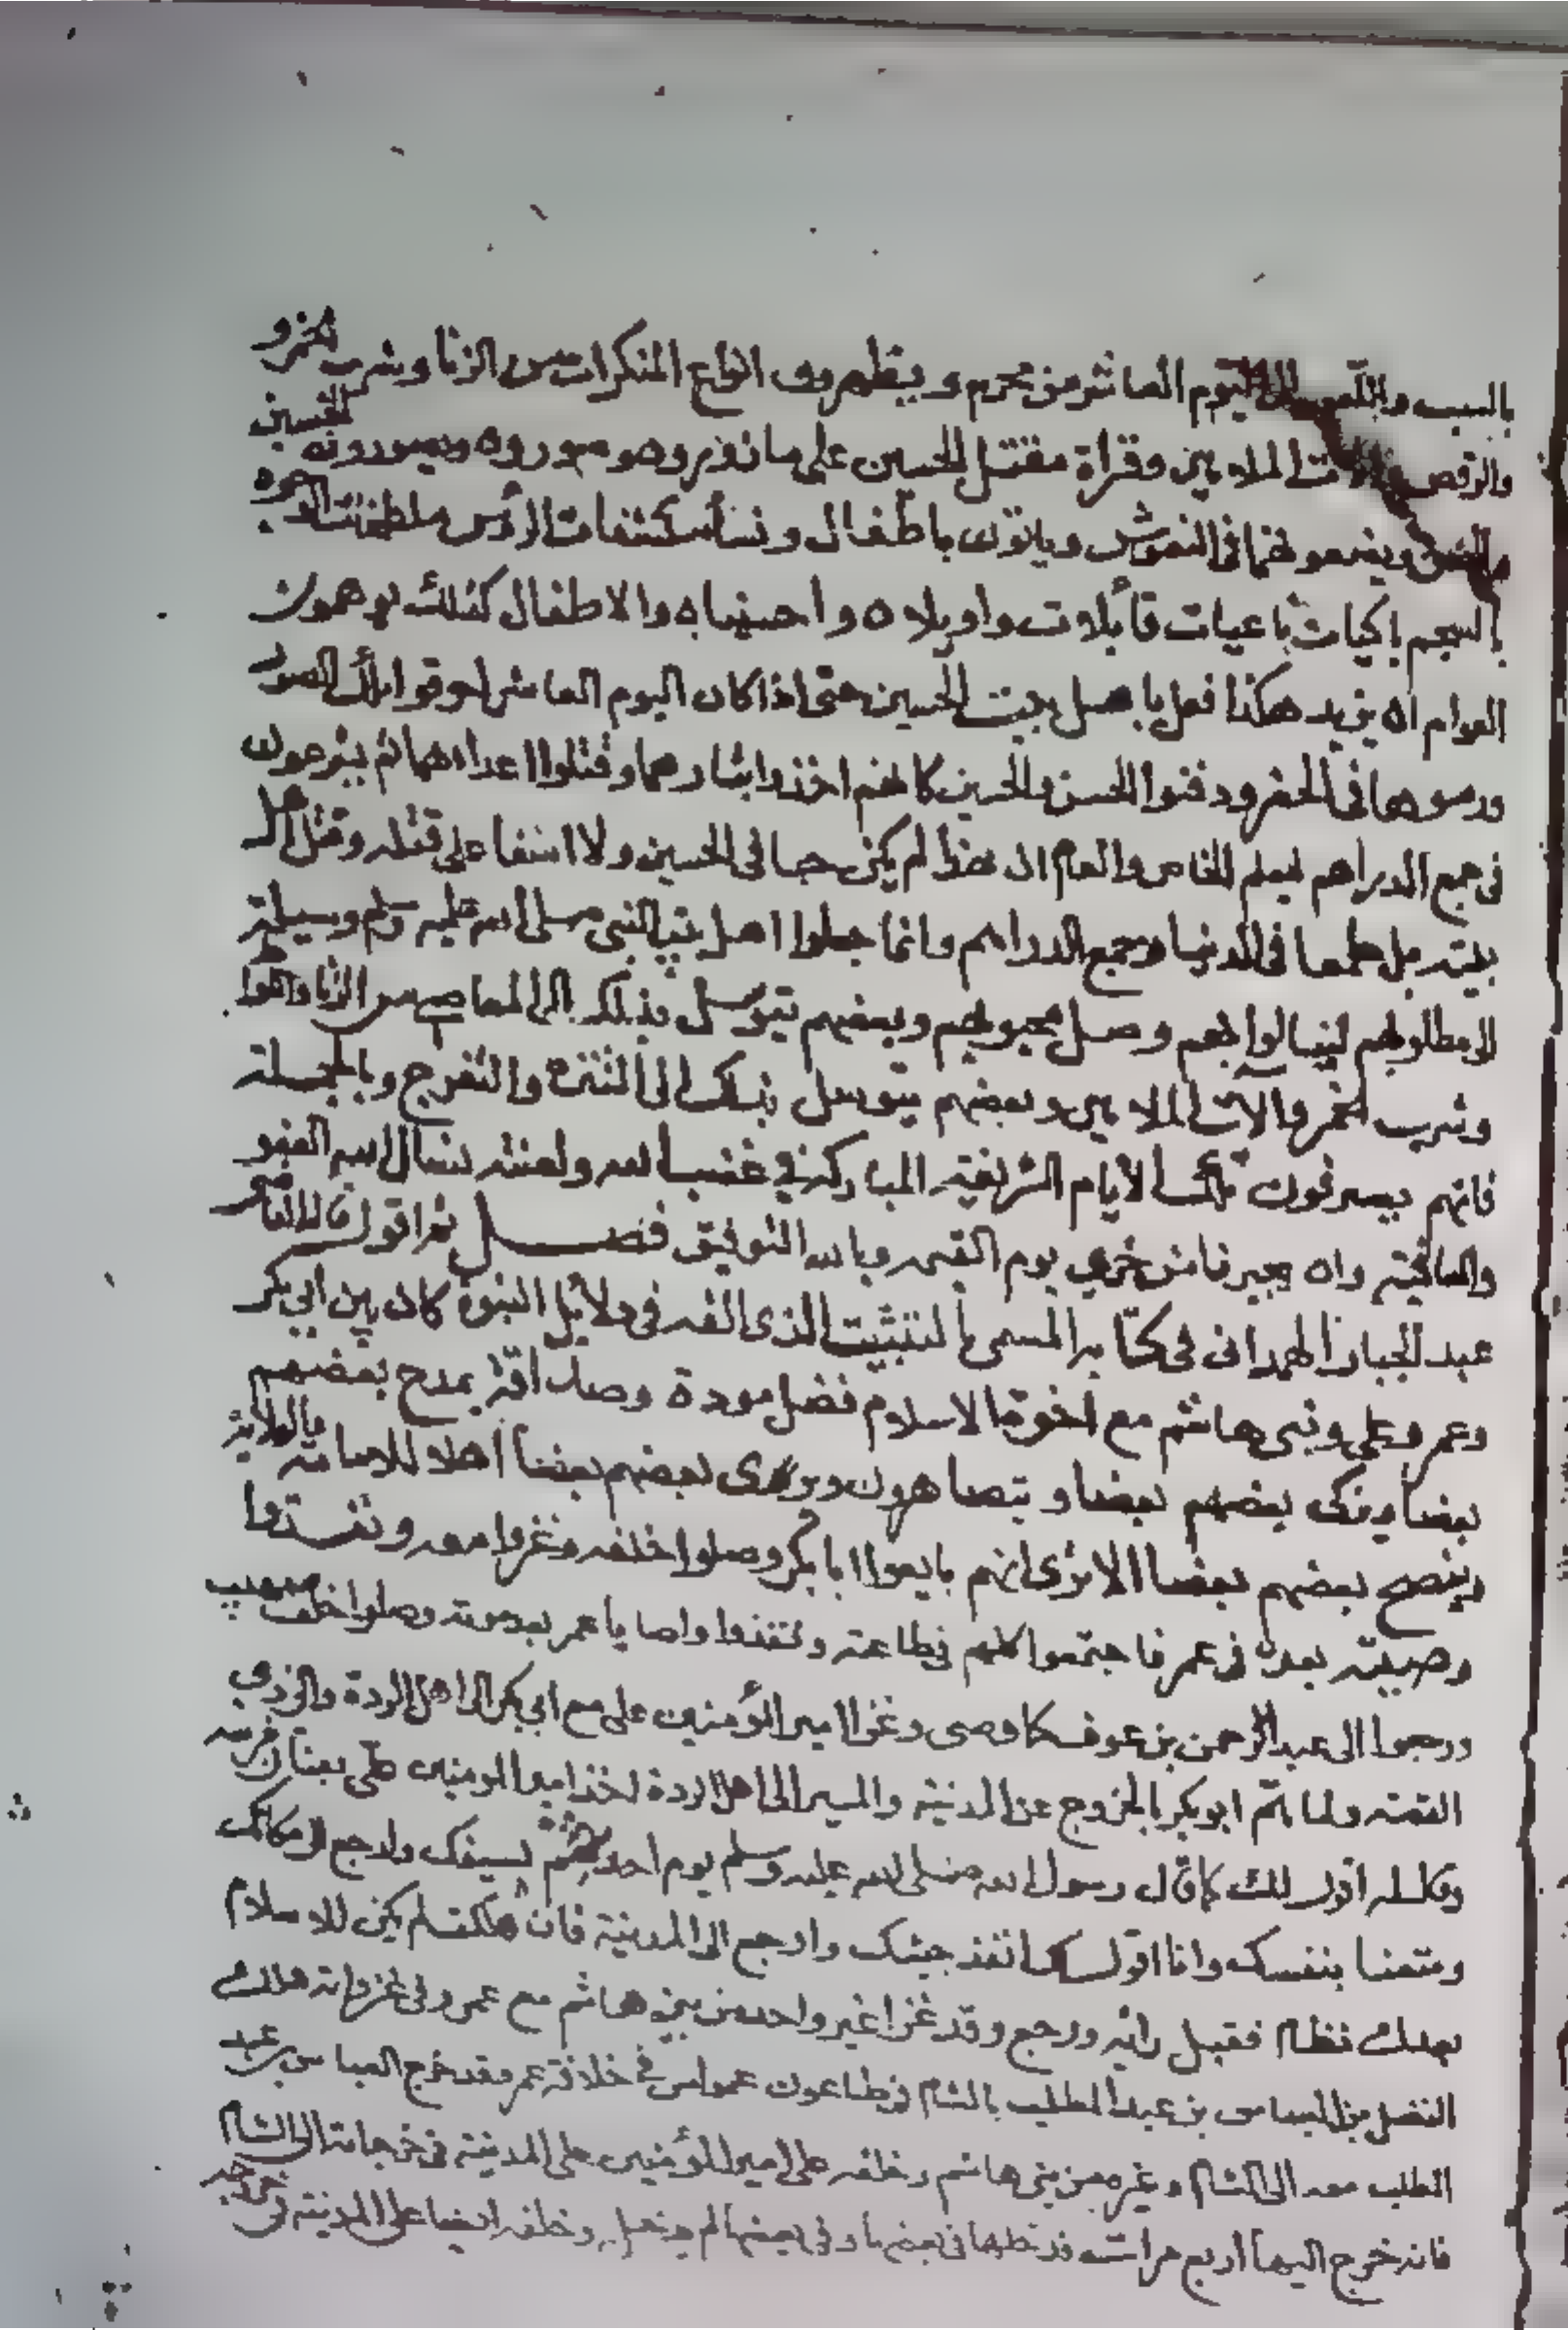 بالسب واللعن الى اليوم العاشر من محرم ويظهروف انواع المنكرات من الزنا وشرب الخمر و
والرقص والات الملاهي وقراة مقتل الحسين على ما زوروه وصوروه ويصورونه
ويضعونهما في النعوش وياتون باطفال ونسأ مكشفات الرؤس ملطخات الوجوه
بالسجم باكيات ناعيات قائلات واويلاه واحسيناه والاطفال كذلك يوهمون
العوام ان يزيد هكذا فعل باهل بيت الحسين حتى اذا كان اليوم العاشر احرقوا تلك الصور
ورموها في الحفر ودفنوا الحسن والحسين كانهم اخذوا بثارهما وقتلوا اعداءهما ثم يشرعون
في جمع الدراهم ليعلم الخاص والعام ان هذا لم يكن حبا في الحسين ولا اسفا على قتله وقتل اهل
بيته بل طمعا في الدنيا وجمع الدراهم وانما جعلوا اهل بيت النبي صلى الله عليه وسلم وسيلة
لمطلوبهم لينالوا بهم وصل محبوبهم وبعضهم يتوسل بذلك الى المعاصي من الزنا واللواط
وشرب الخمر والات الملاهي وبعضهم يتوسل بذلك الى التنزه والتفرج وبالجملة
فانهم يصرفون تلك الايام الشريفة المباركة في غضب الله ولعنته نسال الله العفو
والعافية وان يجيرنا من خزي يوم القيمة وبالله التوفيق فصل ثم اقول قال القاضي
عبد الجبار الهمداني في كتابه المسمى بالتثبيت الذى الفه في دلائل النبوة كان بين ابي بكر
وعمر وعلي وبني هاشم مع اخوة الاسلام فضل مودة وصداقة يمدح بعضهم
بعضا ويزكى بعضهم بعضا ويتصاهرون ويرى بعضهم بعضا اهلا للامامة والولاية
وينصح بعضهم بعضا الا ترى انهم بايعوا ابا بكر وصلوا خلفه وغزوا معه ونفذوا
وصيته بعده في عمر فاجتمعوا كلهم في طاعته ونفذوا وصايا عمر بعد موته وصلوا خلف صهيب
ورجعوا الى عبد الرحمن بن عوف كما وصى وغزا امير المؤمنين على مع ابي بكر الى اهل الردة والى ذي
القصة ولما هم ابو بكر بالخروج عن المدينة والمسير الى اهل الردة اخذ امير المومنين علي بعنان فرسه
وقال له اقول لك كما قال رسول الله صلى الله عليه وسلم يوم احد شم سيفك وارجع الى مكانك
ومتعنا بنفسك وانا اقول لك انفذ جيشك وارجع الى المدينة فان هلكت لم يكن للاسلام
بعدك نظام فقبل رائه ورجع وقد غزا غير واحد من بني هاشم مع عمر وفي غزواته هلك
الفضل بن العباس بن عبد المطلب بالشام في طاعون عمواس في خلافة عمر وقد خرج العباس بن عبد
المطلب معه الى الشام وغيره من بني هاشم وخلفه علي امير المؤمنين على المدينة في خرجاته الى الشام
فانه خرج اليها اربع مرات قد دخلها في بعضها وفي بعضها لم يدخل وخلفه ايضا على المدينة في خروجه